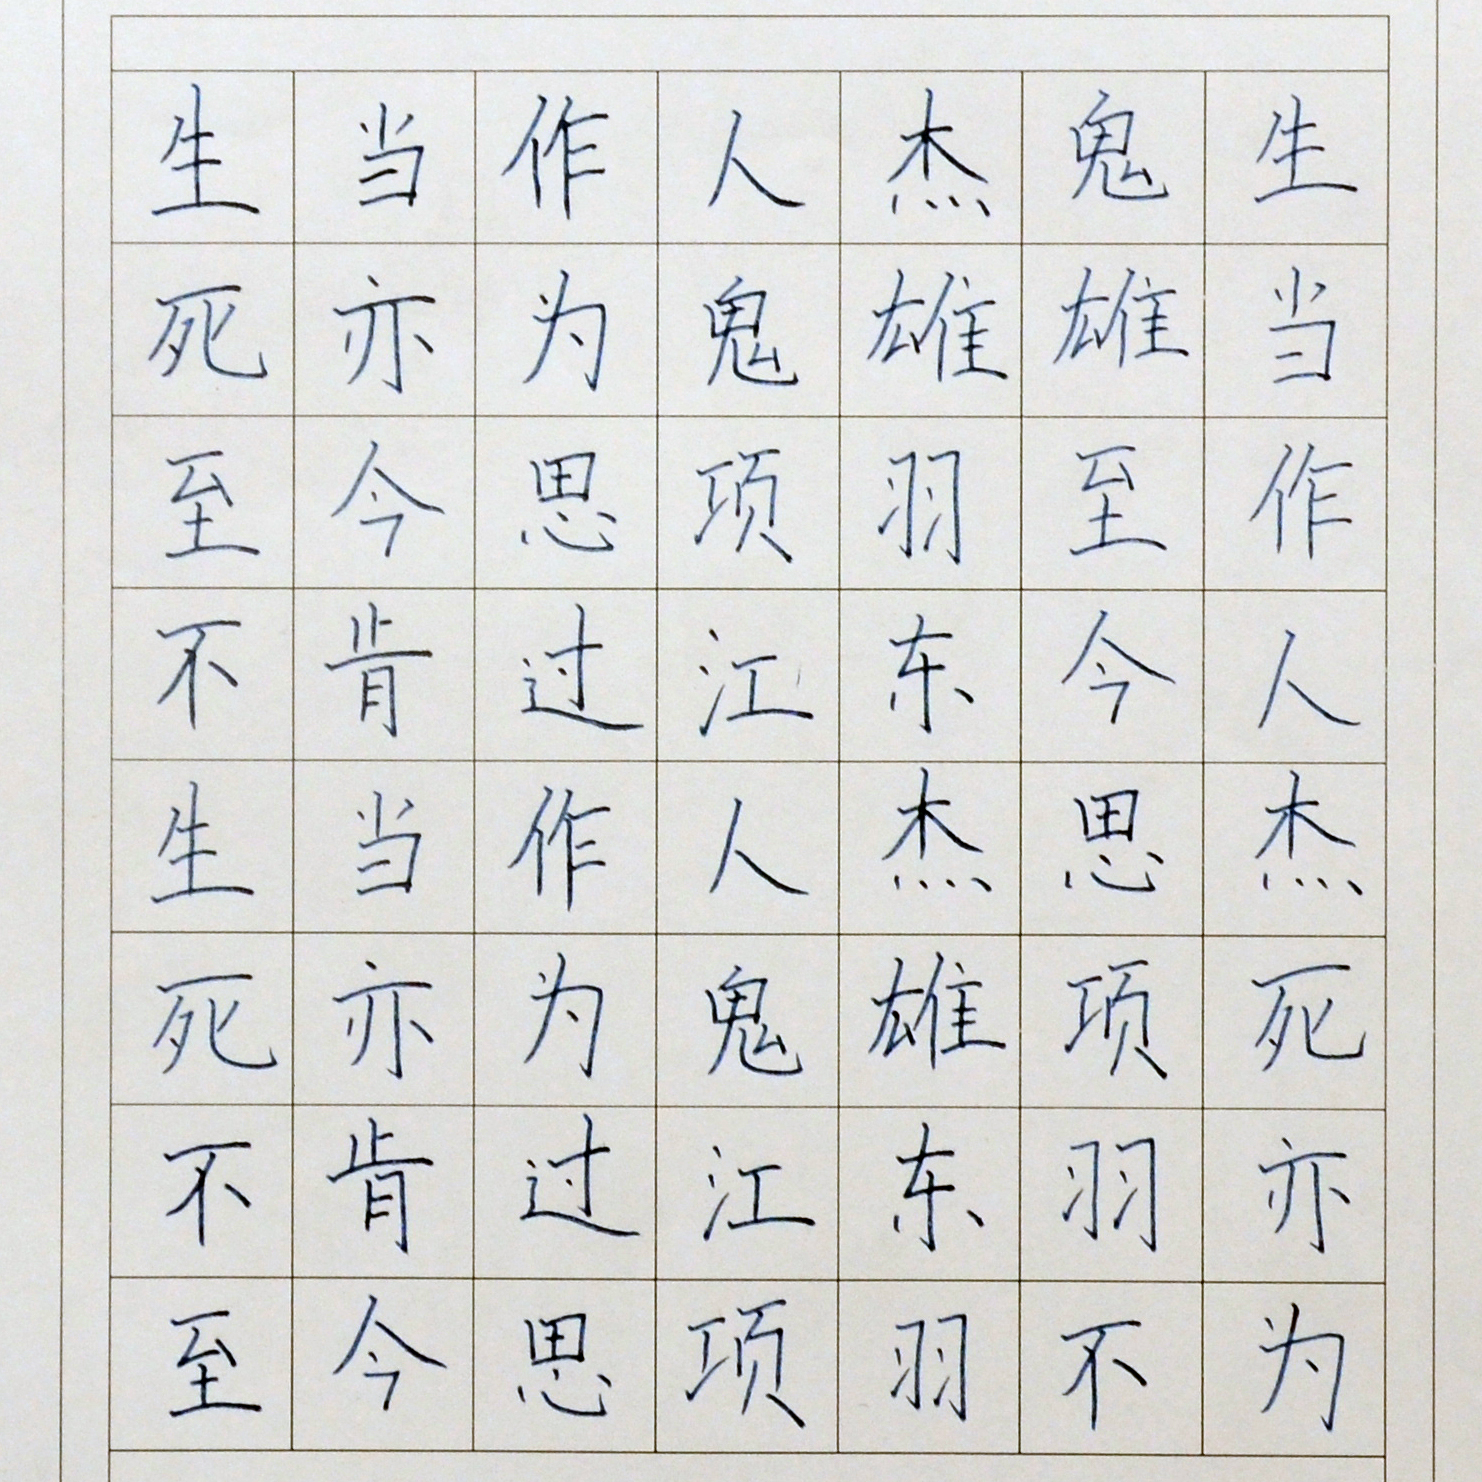 生当作人杰鬼生
死亦为鬼雄雄当
至今思项羽至作
不肯过江东今人
生当作人杰思杰
死亦为鬼雄项死
不肯过江东羽亦
至今思项羽不为